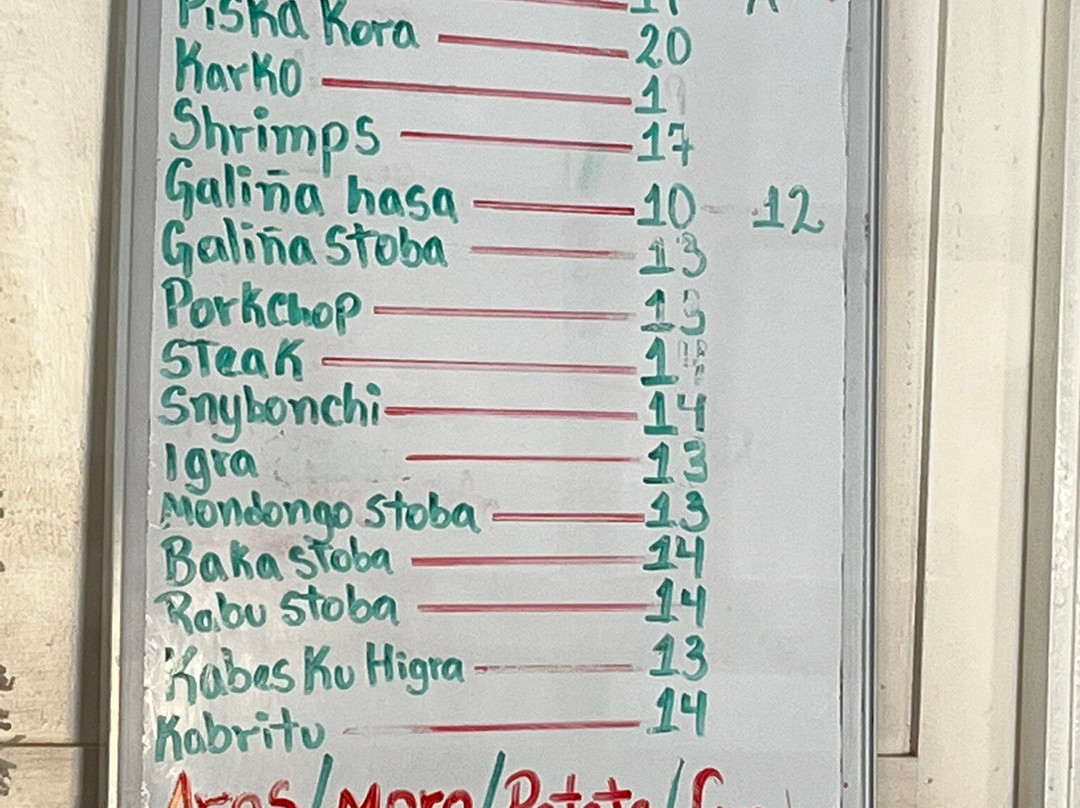 Piska Kora 20
Karko 1
Shrimps 17
Galiña hasa 10 12
Galiña Stoba 13
Porkchop 13
Steak 1
Snybonchi 14
Igra 13
Mondongo Stoba 13
Baka Stoba 14
Rabu Stoba 14
Kabes Ku Higra 13
Kabritu 14
Aros/Moro/Potato/